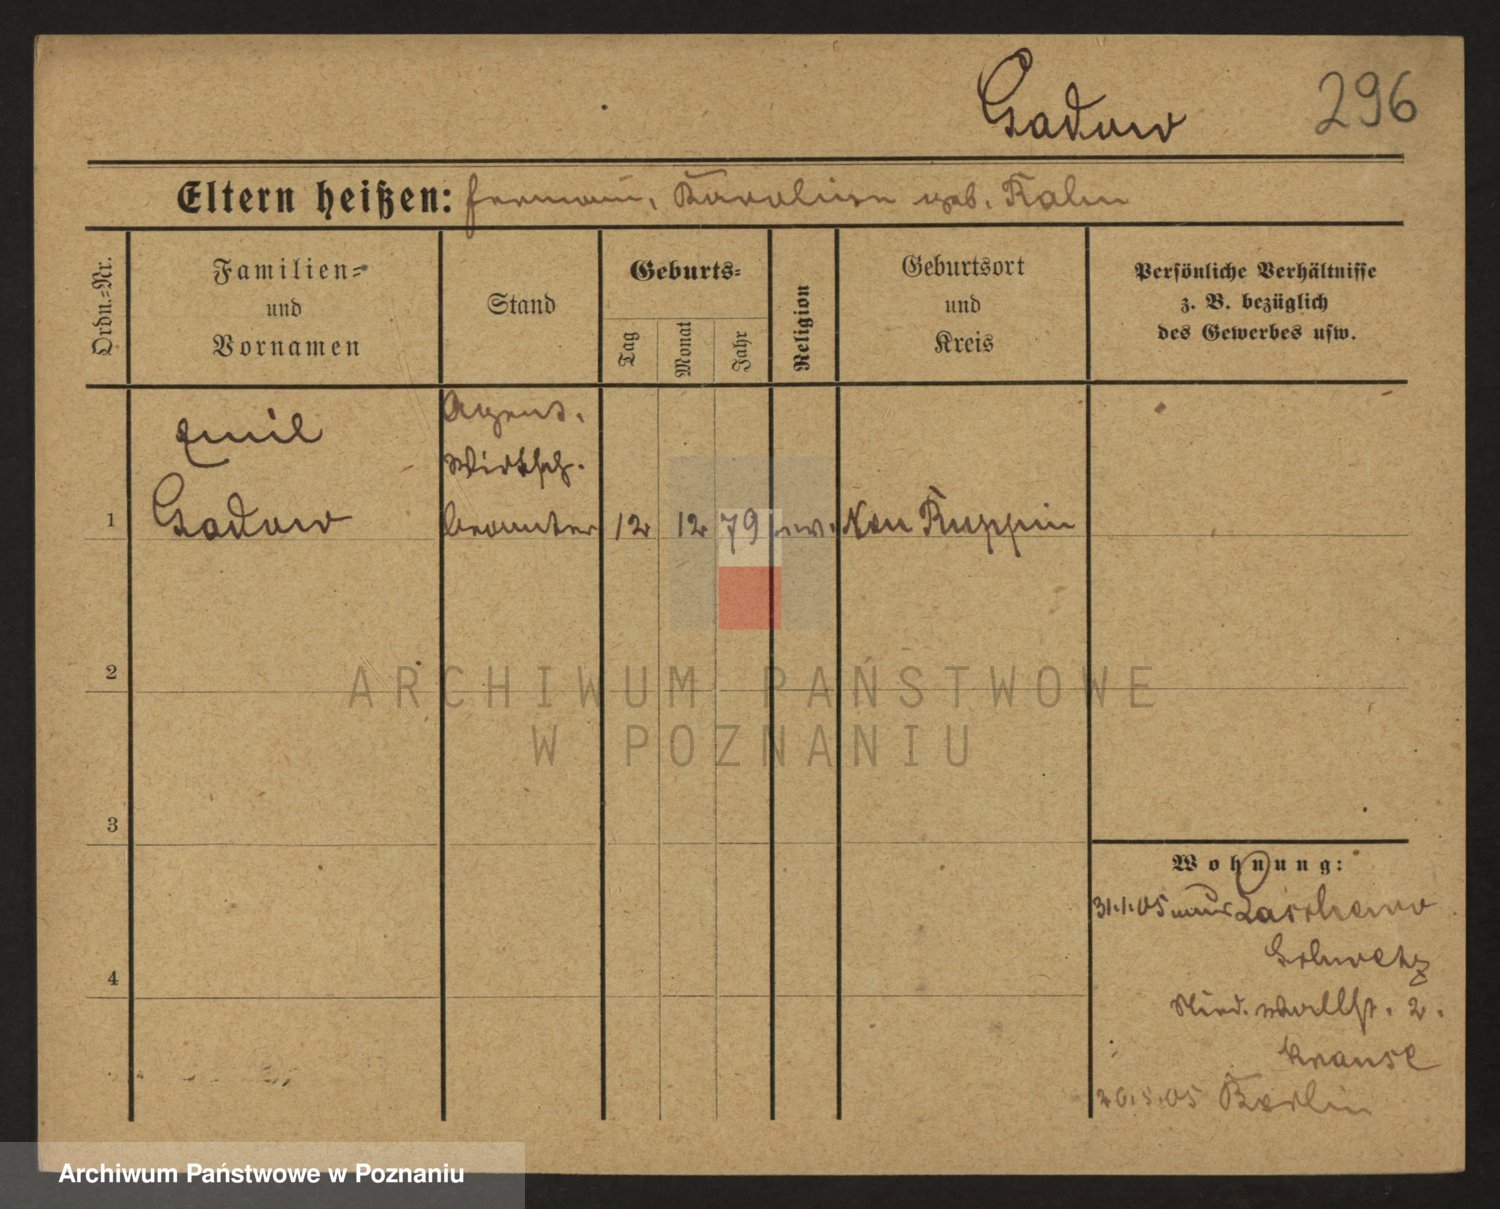 Gadow
296
Eltern heißen: Hermann, Karoline geb. Kalm
Ordn.-Nr.
Familien-
und
Vornamen
Stand
Geburts-
Tag
Monat
Jahr
Religion
Geburtsort
und
Kreis
Persönliche Verhältnisse
z. B. bezüglich
des Gewerbes usw.
Emil
Gadow
Agent.
Wirtsch.
beamter
1
12 12 79 ev. Neu Ruppin
2
3
4
Wohnung:
31.1.05 aus
Schwetz
Nied. wallst. 2.
Krause
20.5.05 Berlin
ARCHIWUM PAŃSTWOWE
W POZNANIU
Archiwum Państwowe w Poznaniu